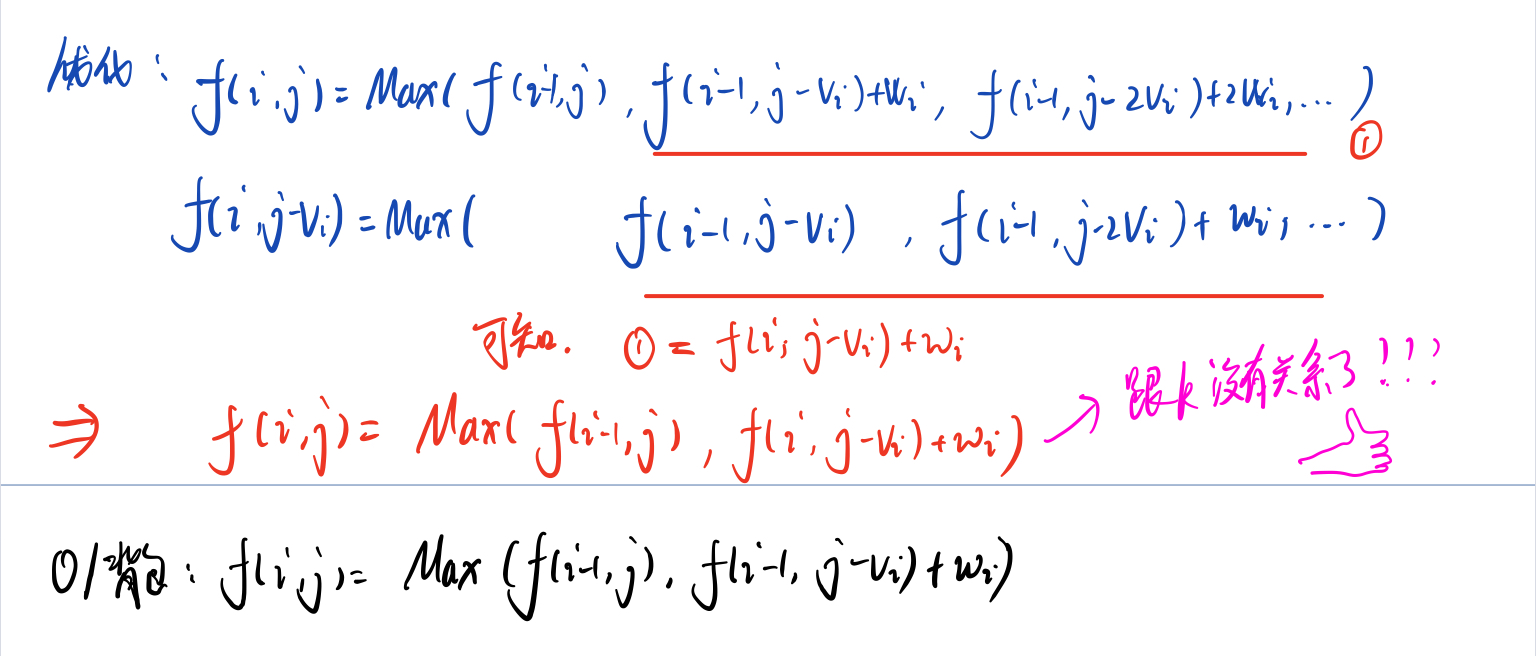 优化: f(i,j)=Max(f(i-1,j), f(i-1,j-vi)+wi, f(i-1,j-2vi)+2wi,...) ①
f(i,j-vi)=Max( f(i-1,j-vi), f(i-1,j-2vi)+wi, ...)
可知. ①=f(i,j-vi)+wi
⇒ f(i,j)=Max(f(i-1,j), f(i,j-vi)+wi) → 跟k没有关系了!!!
01背包: f(i,j)=Max(f(i-1,j), f(i-1,j-vi)+wi)